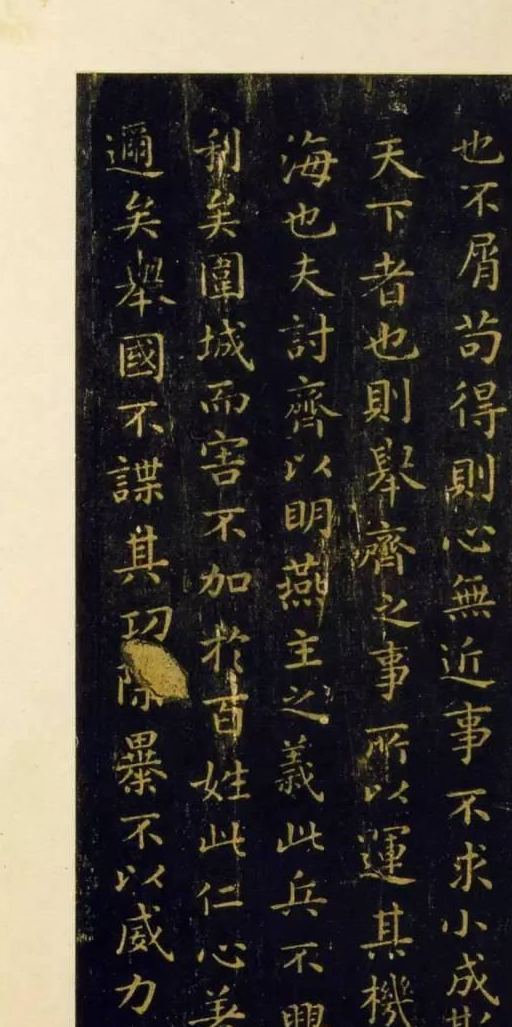 也不屑苟得則心無近事不求小成斯
天下者也則舉齊之事所以運其機
海也夫討齊以明燕主之義此兵不興
利矣圍城而害不加於百姓此仁心著
邇矣舉國不謀其功除暴不以威力